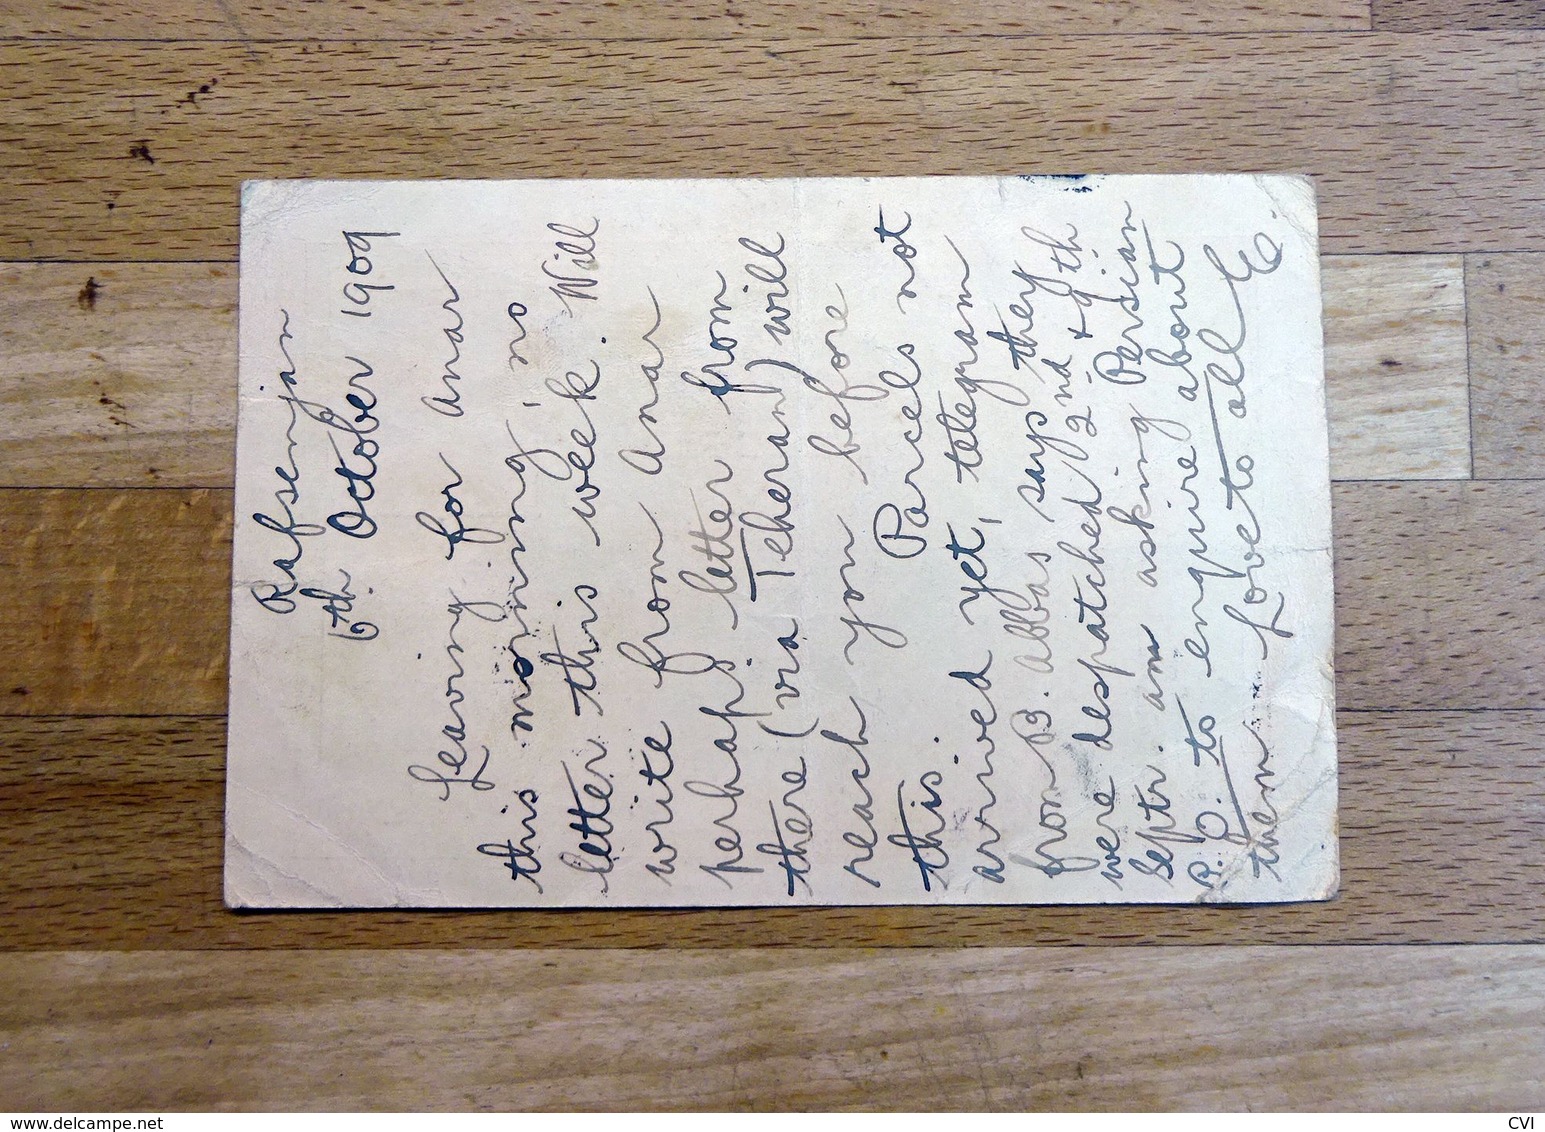 Rafsenjan
6th October 1909
Leaving for Anar
this morning, no
letter this week. Will
write from Anar
perhaps letter from
there (via Teheran) will
reach you before
this. Parcels not
arrived yet, telegram
from B. Abbas says they
were despatched 2nd + 9th
Septr. am asking Persian
P.O. to enquire about
them Love to all E.
www.delcampe.net
CVI